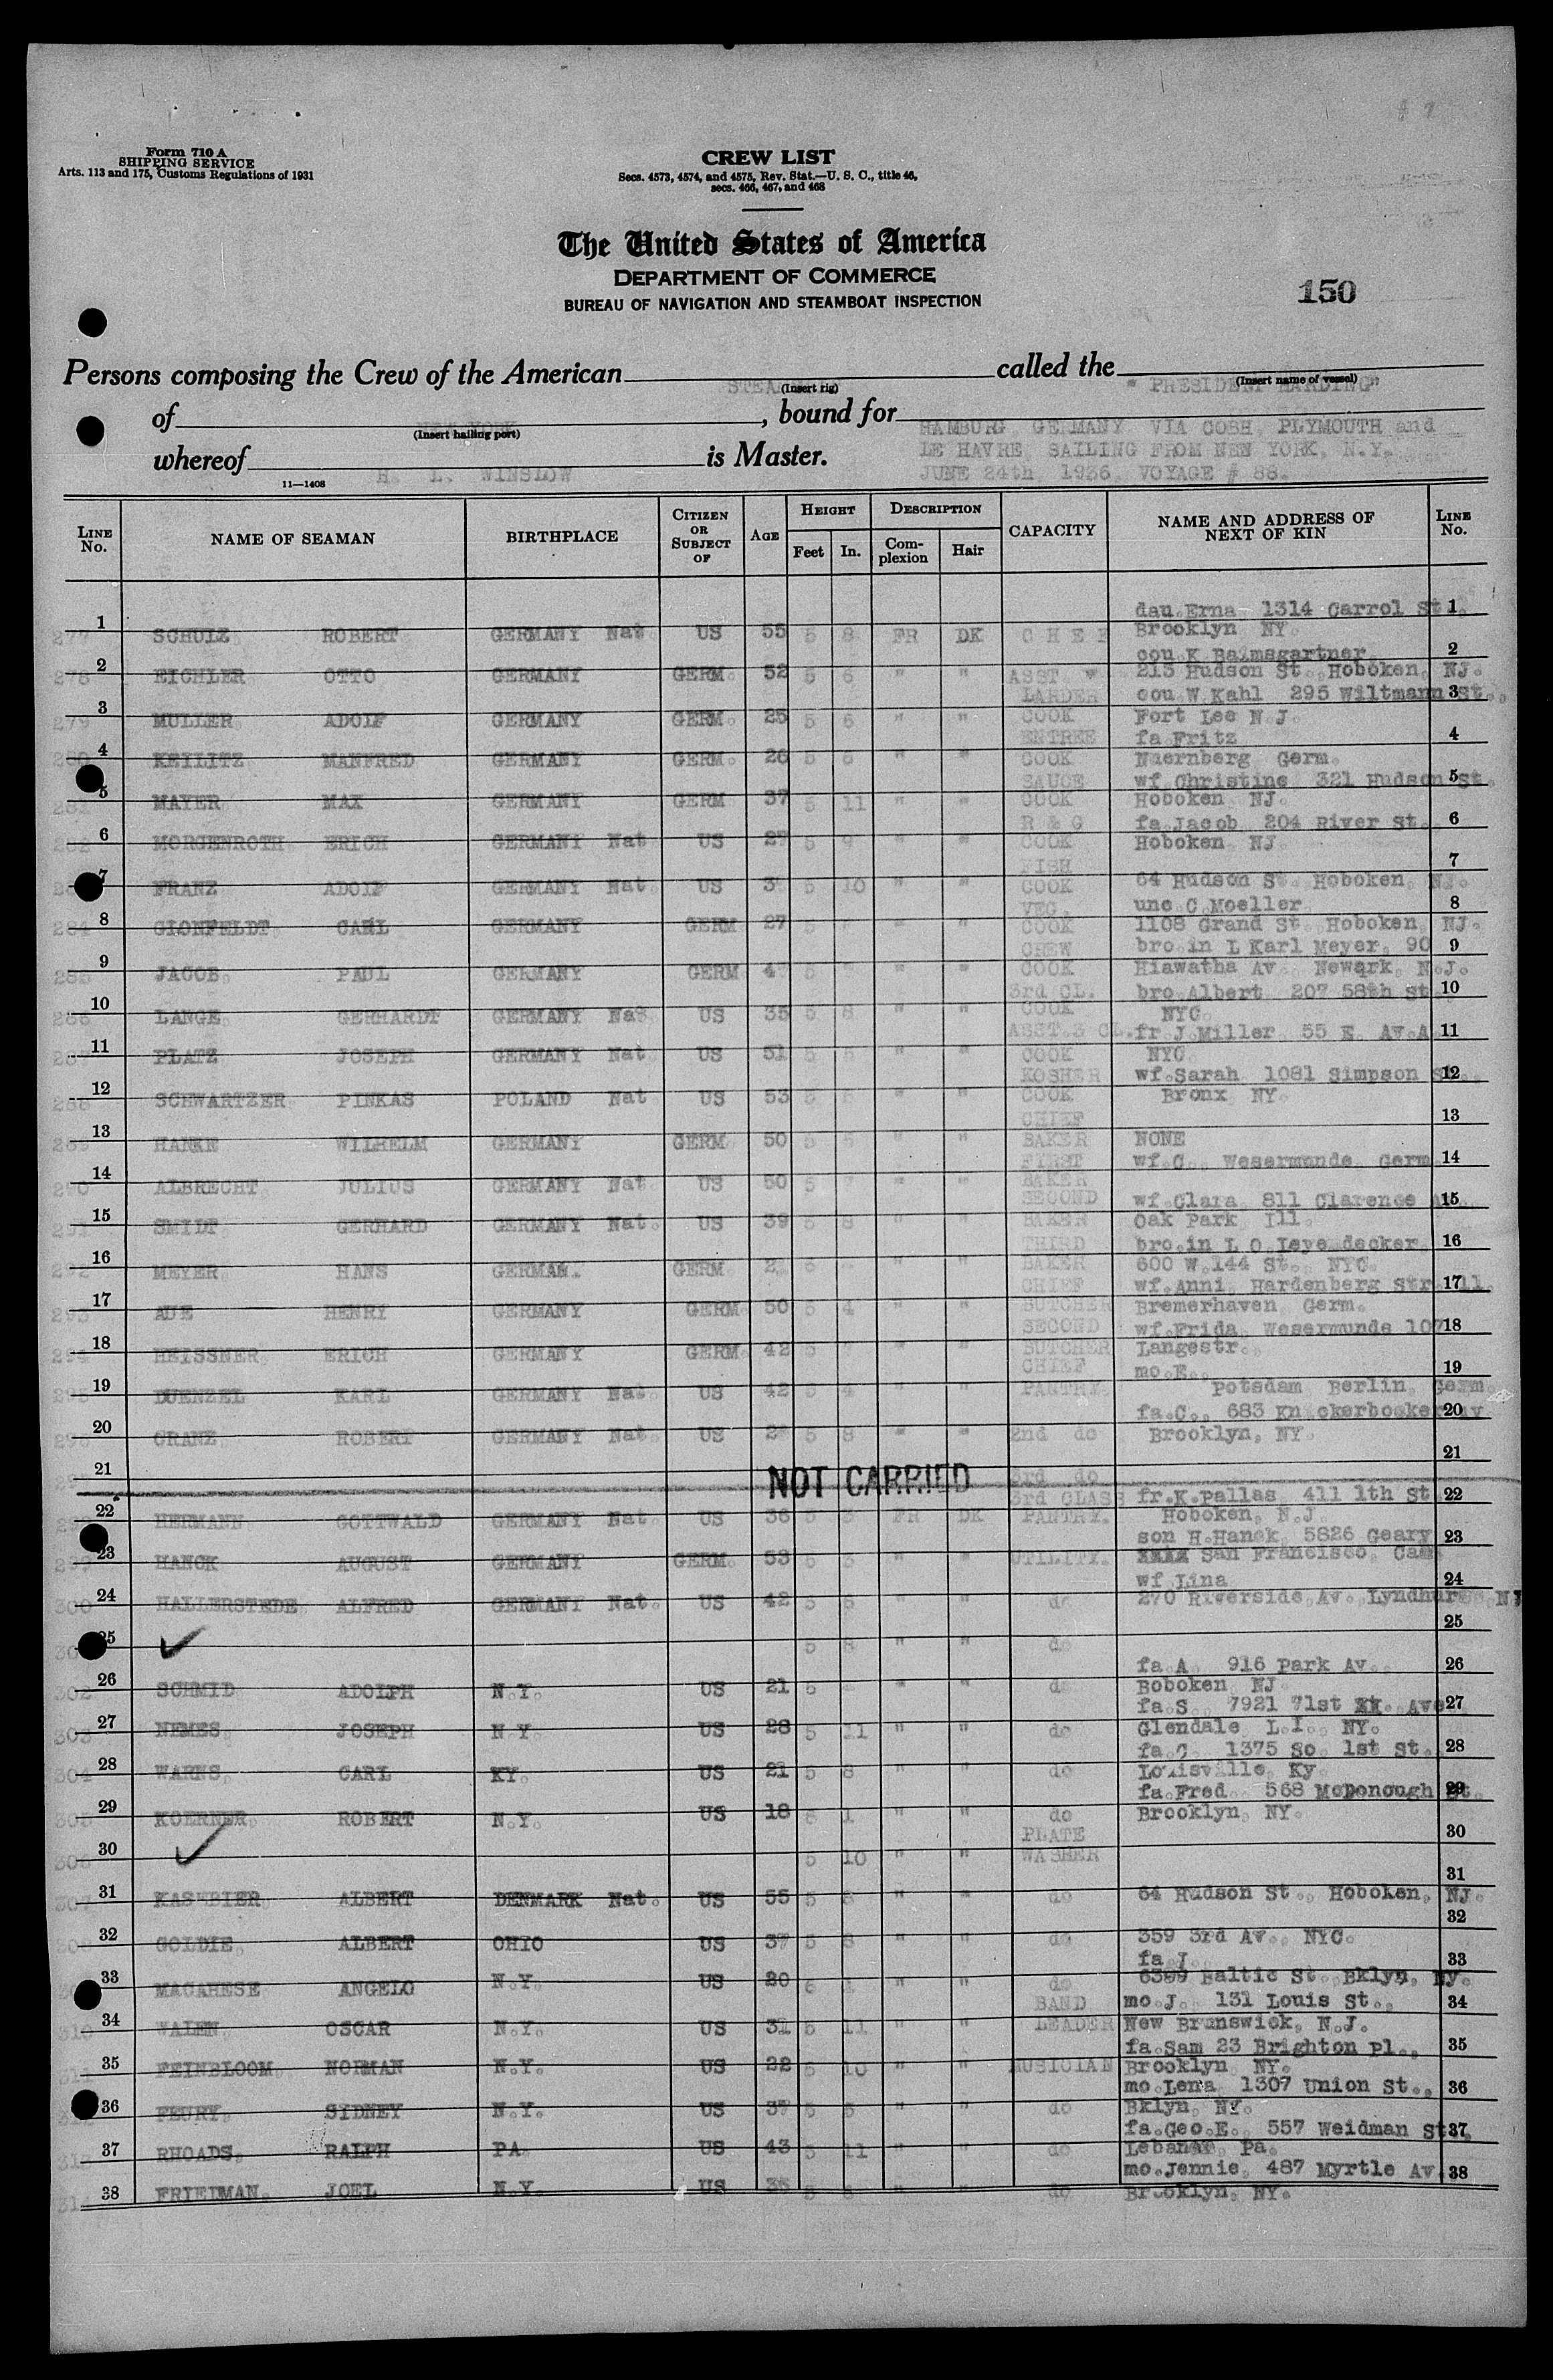 Form 710 A
SHIPPING SERVICE
Arts. 113 and 175, Customs Regulations of 1931
CREW LIST
Secs. 4573, 4574, and 4575, Rev. Stat.—U. S. C., title 46,
secs. 466, 467, and 468
The United States of America
DEPARTMENT OF COMMERCE
BUREAU OF NAVIGATION AND STEAMBOAT INSPECTION
150
Persons composing the Crew of the American STEAM called the "PRESIDENT HARDING"
(Insert rig) (Insert name of vessel)
of NEW YORK, bound for HAMBURG GERMANY VIA COBH, PLYMOUTH and
(Insert hailing port) LE HAVRE SAILING FROM NEW YORK, N.Y.
whereof H. L. WINSLOW is Master. JUNE 24th 1936 VOYAGE # 88.
11—1408
LINE No. NAME OF SEAMAN BIRTHPLACE CITIZEN OR SUBJECT OF AGE HEIGHT Feet In. DESCRIPTION Complexion Hair CAPACITY NAME AND ADDRESS OF NEXT OF KIN LINE No.
1 SCHULZ ROBERT GERMANY Nat. US 55 5 8 FR DK CHEF dau.Erna 1314 Carrol St. Brooklyn NY. 1
2 EICHLER OTTO GERMANY GERM. 52 5 6 " " ASST. " cou K Baimsgartner 215 Hudson St., Hoboken, NJ. 2
3 MULLER ADOLF GERMANY GERM. 25 5 6 " " LARDER COOK cou W.Kahl 295 Wiltmann St., Fort Lee N.J. 3
4 KEILITZ MANFRED GERMANY GERM. 26 5 8 " " ENTREE COOK fa Fritz Nuernberg Germ. 4
5 MAYER MAX GERMANY GERM 37 5 11 " " SAUCE COOK wf.Christine 321 Hudson St. Hoboken, NJ. 5
6 MORGENROTH ERICH GERMANY Nat. US 27 5 9 " " R & G COOK fa.Jacob 204 River St. Hoboken, NJ. 6
7 FRANZ ADOLF GERMANY Nat. US 5 10 " " FISH COOK 64 Hudson St. Hoboken, NJ. 7
8 GIONFELDT CARL GERMANY GERM 27 5 " " VEG. COOK unc C.Moeller 1108 Grand St., Hoboken, NJ. 8
9 JACOB PAUL GERMANY GERM 5 " " CREW COOK bro.in L Karl Meyer, 90 Hiawatha Av. Newark, N.J. 9
10 LANGE GERHARDT GERMANY Nat US 35 5 8 " " 3rd CL. COOK bro.Albert 207 58th St. NYC. 10
11 PLATZ JOSEPH GERMANY Nat US 51 5 5 " " ASST.3 CL. COOK fr.J.Miller 55 E. Av.A. NYC 11
12 SCHWARTZER PINKAS POLAND Nat US 53 5 " " KOSHER COOK wf.Sarah 1081 Simpson St. Bronx NY. 12
13 HANKE WILHELM GERMANY GERM 50 5 5 " " CHIEF BAKER NONE 13
14 ALBRECHT JULIUS GERMANY Nat US 50 5 7 " " FIRST BAKER wf.C., Wesermunde, Germ. 14
15 SMIDT GERHARD GERMANY Nat. US 39 5 8 " " SECOND BAKER wf.Clara 811 Clarence Oak Park Ill. 15
16 MEYER HANS GERMAN. GERM 5 " " THIRD BAKER bro.in L O Leyendecker 600 W.144 St., NYC. 16
17 AUE HENRY GERMANY GERM 50 5 4 " " CHIEF BUTCHER wf.Anni, Hardenberg Str 11. Bremerhaven, Germ. 17
18 HEISSNER ERICH GERMANY GERM. 42 5 7 " " SECOND BUTCHER wf.Frida, Wesermunde 107 Langestr. 18
19 DUENZEL KARL GERMANY Nat US 42 5 4 " " CHIEF PANTRY. mo.E., Potsdam Berlin, Germ. 19
20 CRANZ ROBERT GERMANY Nat. US 5 8 " " 2nd do fa.C., 683 Knickerbocker Av Brooklyn, NY. 20
21 NOT CARRIED 3rd do 21
22 HERMANN GOTTWALD GERMANY Nat. US 36 5 3 FR DK 3rd CLASS PANTRY. fr.K.Pallas 411 1th St Hoboken, N.J. 22
23 HANCK AUGUST GERMANY GERM. 53 5 5 " " UTILITY. son H.Hanck, 5826 Geary San Francisco, Cal. 23
24 HALLERSTEDE ALFRED GERMANY Nat. US 42 5 6 " " do wf Lina 270 Riverside,Av.,Lyndhurst NJ 24
25 5 8 " " do 25
26 SCHMID ADOLPH N.Y. US 21 5 " " do fa.A 916 Park Av., Hoboken NJ 26
27 NEMES JOSEPH N Y US 28 5 11 " " do fa.S. 7921 71st Ave Glendale L.I., NY. 27
28 WARNS CARL KY. US 21 5 8 " " do fa.C. 1375 So 1st St. Louisville, Ky. 28
29 KOERNER ROBERT N.Y. US 18 6 1 " " do fa.Fred. 568 McDonough St. Brooklyn, NY. 29
30 5 10 " " PLATE WASHER 30
31 KASHBIER ALBERT DENMARK Nat. US 55 5 8 " " do 64 Hudson St., Hoboken, NJ. 31
32 GOLDIE ALBERT OHIO US 37 5 8 " " do 359 3rd Av., NYC. 32
33 MACARESE ANGELO N.Y. US 20 6 1 " " do fa J. 6399 Baltic St. Bklyn, Ny. 33
34 WALEN OSCAR N.Y. US 31 5 11 " " BAND LEADER mo.J. 131 Louis St., New Brunswick, N.J. 34
35 FEINBLOOM NORMAN N.Y. US 22 5 10 " " MUSICIAN fa.Sam 23 Brighton Pl., Brooklyn NY. 35
36 FEURY SIDNEY N.Y. US 37 5 5 " " do mo.Lena 1307 Union St., Bklyn, NY. 36
37 RHOADS RALPH PA. US 43 5 11 " " do fa.Geo.E. 557 Weidman St. Lebanon, Pa. 37
38 FRIEDMAN JOEL N.Y. US 35 5 8 " " do mo.Jennie, 487 Myrtle Av. Brooklyn, NY. 38